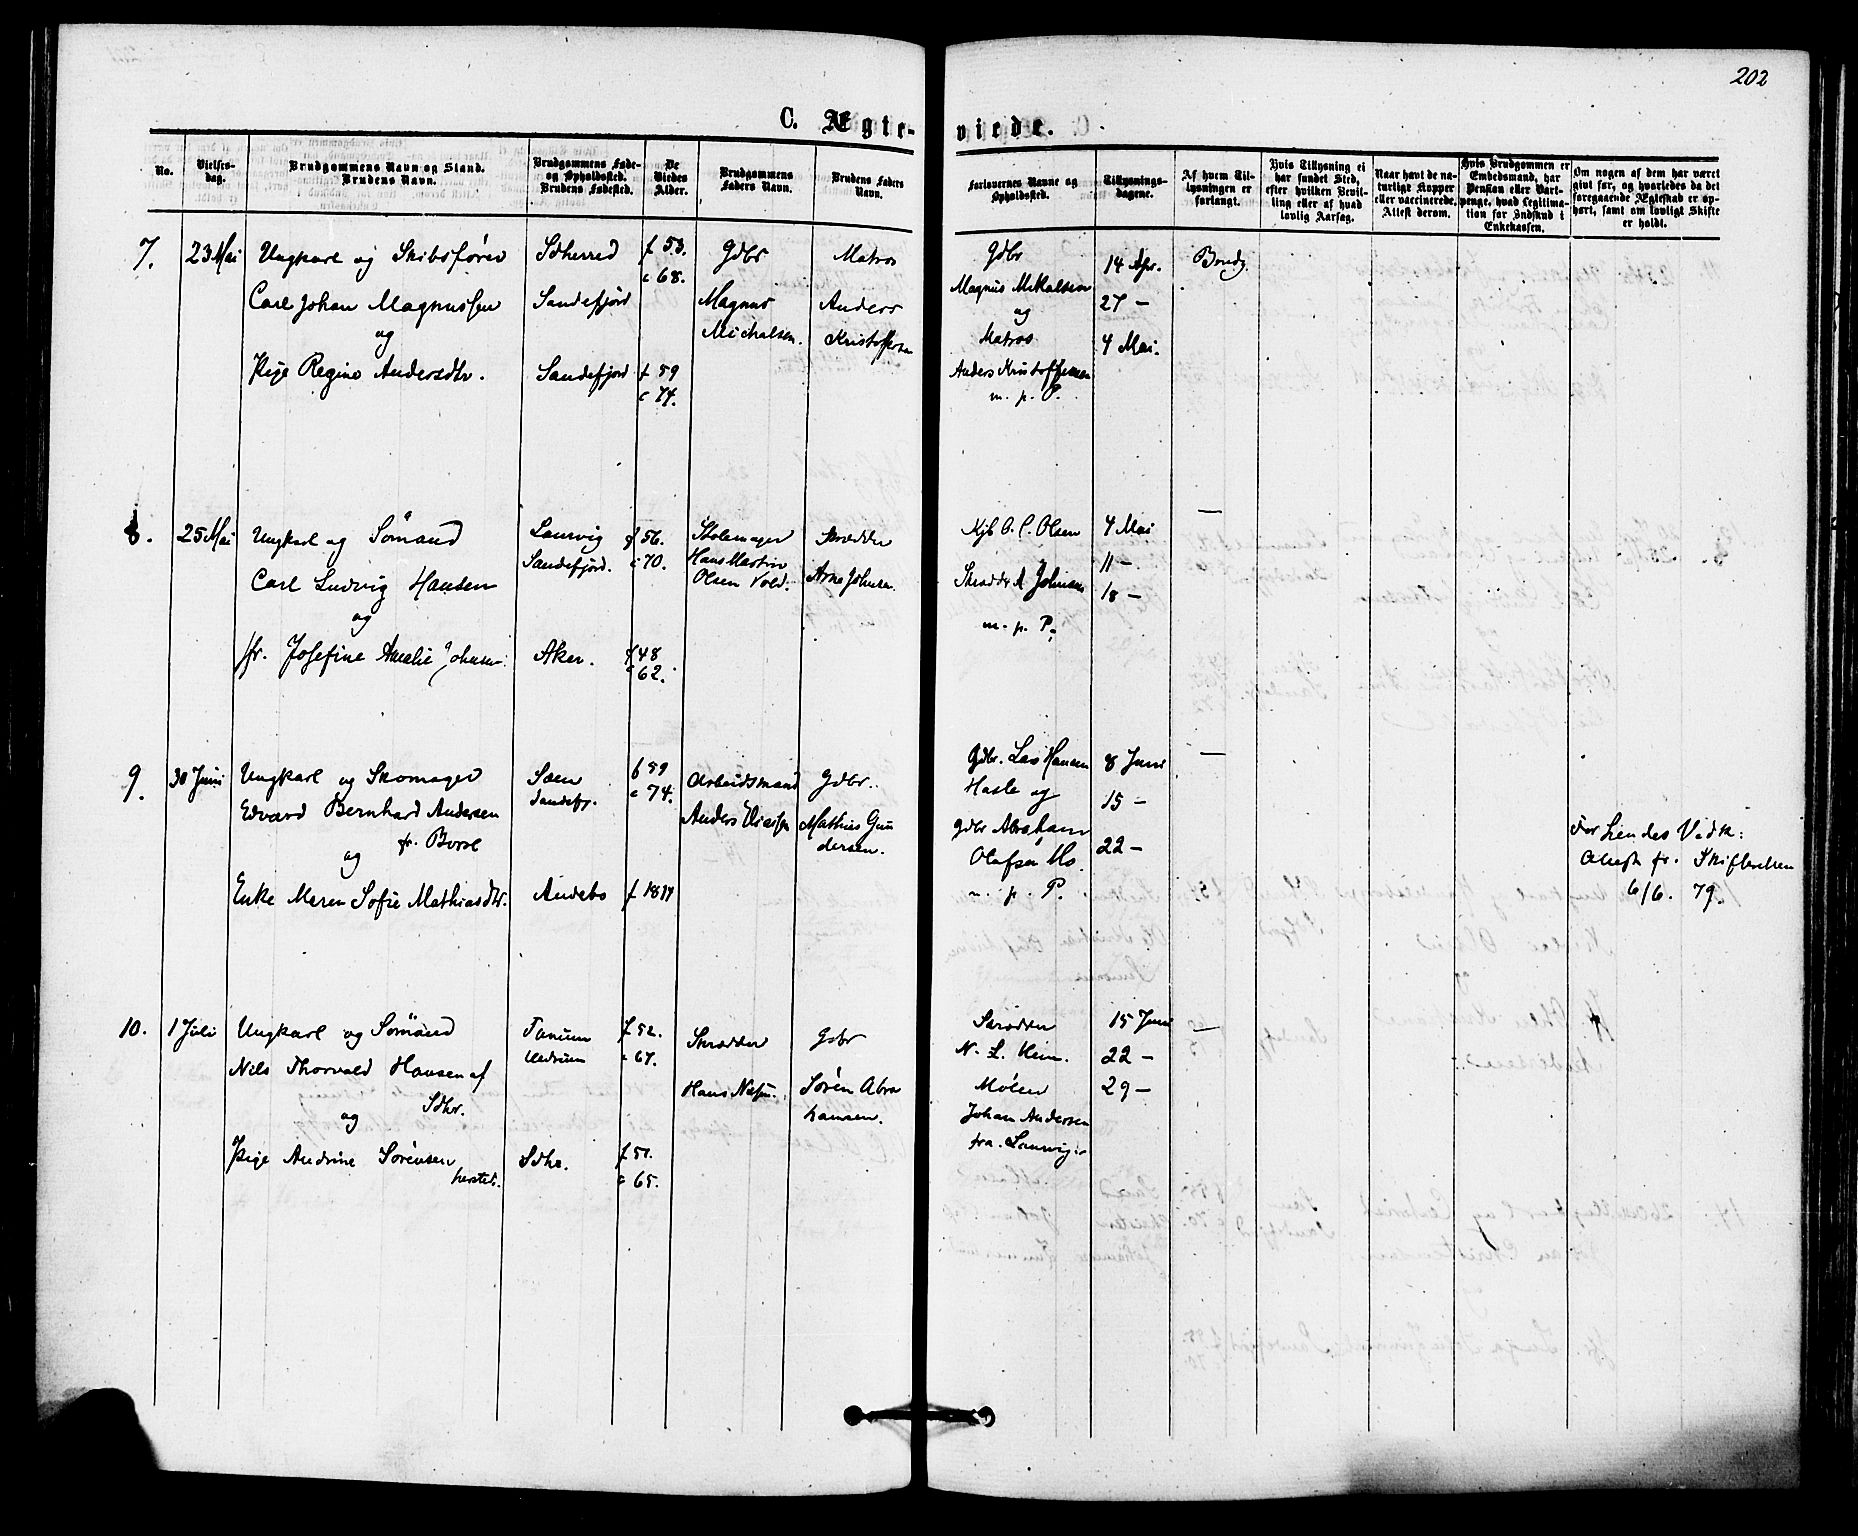 202
C. Ægte-
viede.
No.
Vielses-
dag.
Brudgommens Navn og Stand.
Brudens Navn.
Brudgommens Føde-
og Opholdssted.
Brudens Fødested.
De
Viedes
Alder.
Brudgommens
Faders Navn.
Brudens Faders
Navn.
Forlovernes Navne og
Opholdssted.
Tillysnings-
dagene.
Af hvem Til-
lysningen er
forlangt.
Hvis Tillysning ei
har fundet Sted,
efter hvilken Bevil-
ling eller af hvad
lovlig Aarsag.
Naar havt de na-
turlige Kopper
eller vaccinerede.
Attest derom.
Hvis Brudgommen er
Embedsmand, har
Pension eller Vart-
penge, hvad Legitima-
tion for Indskud i
Enkekassen.
Om nogen af dem har været
gift før, og hvorledes da det
foregaaende Ægteskab er op-
hørt, samt om lovligt Skifte
er holdt.
7.
23 Mai
Ungkarl og Skibsfører
Carl Johan Magnussen
og
Pige Regine Andersdtr.
Sdherred
Sandefjord
Sandefjord
f 53.
c 68.
f 59
c 74.
Gdbr
Magnus
Michalsen.
Matros
Anders
Kristoffersen
Gdbr
Magnus Mikalsen
og
Matros
Anders Kristoffersen
m. p. P.
14 Apr.
27 —
4 Mai.
Brudg.
8.
25 Mai
Ungkarl og Sømand
Carl Ludvig Hansen
og
fr. Josefine Amalie Johnsen
Laurvig
Sandefjord.
Aker.
f 56.
c 70.
f 48
c 62.
Stolemager
Hans Martin
Olsen Vold.
Skrædder
Arne Johnsen
Kjb O. C. Olsen
Skrædder A Johnsen
m. p. P.
4 Mai
11 —
18 —
—
9.
30 Juni
Ungkarl og Skomager
Edvard Bernhard Andersen
fr. Borre
og
Enke Maren Sofie Mathiasdtr.
Sæm
Sandefj.
Andebo
f 59
c 74.
Arbeidsmand
Anders
Gdbr.
Mathias Gun
dersen.
Gdbr. Lars Hansen
Hasle og
Gdbr Abraham
Olafsen Mo
m. p. P.
8 Juni
15 —
22 —
—
For hendes Vedk:
Attest fr. Skifteretten
6/6. 79.
10.
1 Juli
Ungkarl og Sømand
Nils Thorvald Hansen af
Sdhr.
og
Pige Andrine Sørensen
Tanum
Hedrum
Sdhr.
f 52.
c 67.
f 51.
c 65.
Skrædder
Hans
Gdbr
Søren Abra
hamsen.
Skrædder
N. L. Heim.
Møller
Johan Andersen
fra Laurvig.
15 Juni
22 —
29 —
—